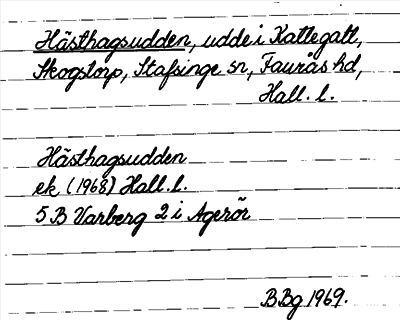 Hästhagsudden, udde i Kattegatt,
Skogstorp, Stafsinge sn, Faurås hd,
Hall. l.
Hästhagsudden
ek (1968) Hall. l.
5 B Varberg 2 i Agerör
B Bg 1969.